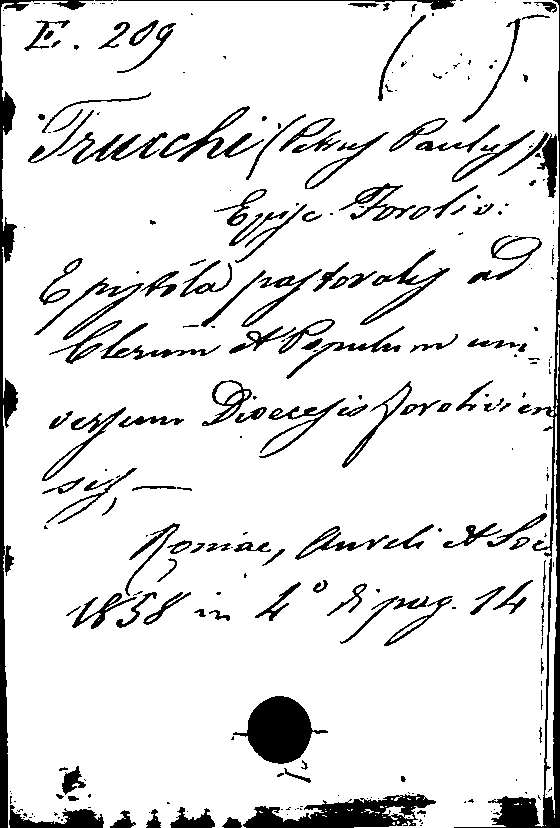 E. 209
Trucchi (Petrus Paulus)
Episc. Foroliv:
Epistola pastoralis ad
Clerum et Populum uni-
versum Dioecesis foroliviens
sis, —
Romae, Aureli et Soc.
1858 in 4° di pag. 14